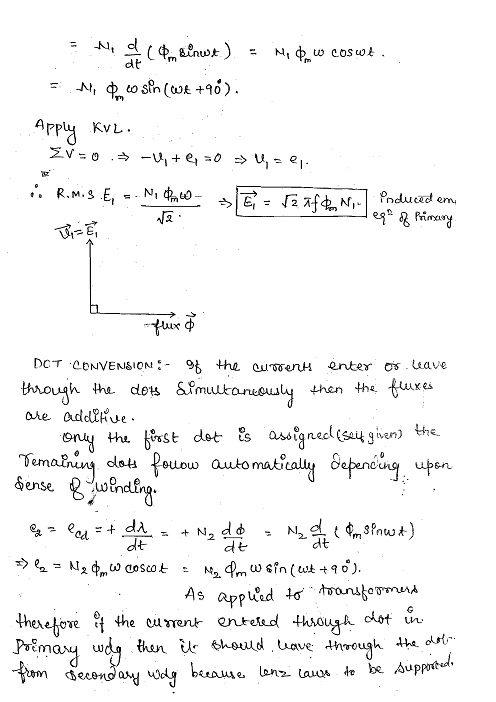 = N₁ d/dt (ϕₘ sinωt) = N₁ ϕₘ ω cosωt.
= N₁ ϕₘ ω sin(ωt +90°).
Apply KVL.
ΣV = 0 ⇒ -V₁ + e₁ = 0 ⇒ V₁ = e₁.
∴ R.M.S E₁ = N₁ ϕₘ ω / √2 ⇒ E₁ = √2 πf ϕₘ N₁ induced em
eqⁿ of Primary
V₁ = E₁
flux ϕ
DOT CONVENSION:- If the currents enter or leave
through the dots simultaneously then the fluxes
are additive.
Only the first dot is assigned (self given) the
remaining dots follow automatically depending upon
sense of winding.
e₂ = e_cd = + dλ/dt = + N₂ dϕ/dt = N₂ d/dt (ϕₘ sinωt)
⇒ e₂ = N₂ ϕₘ ω cosωt = N₂ ϕₘ ω sin(ωt +90°).
As applied to transformers
therefore if the current entered through dot in
primary wdg then it should leave through the dot
from secondary wdg because lenz laws to be supported.